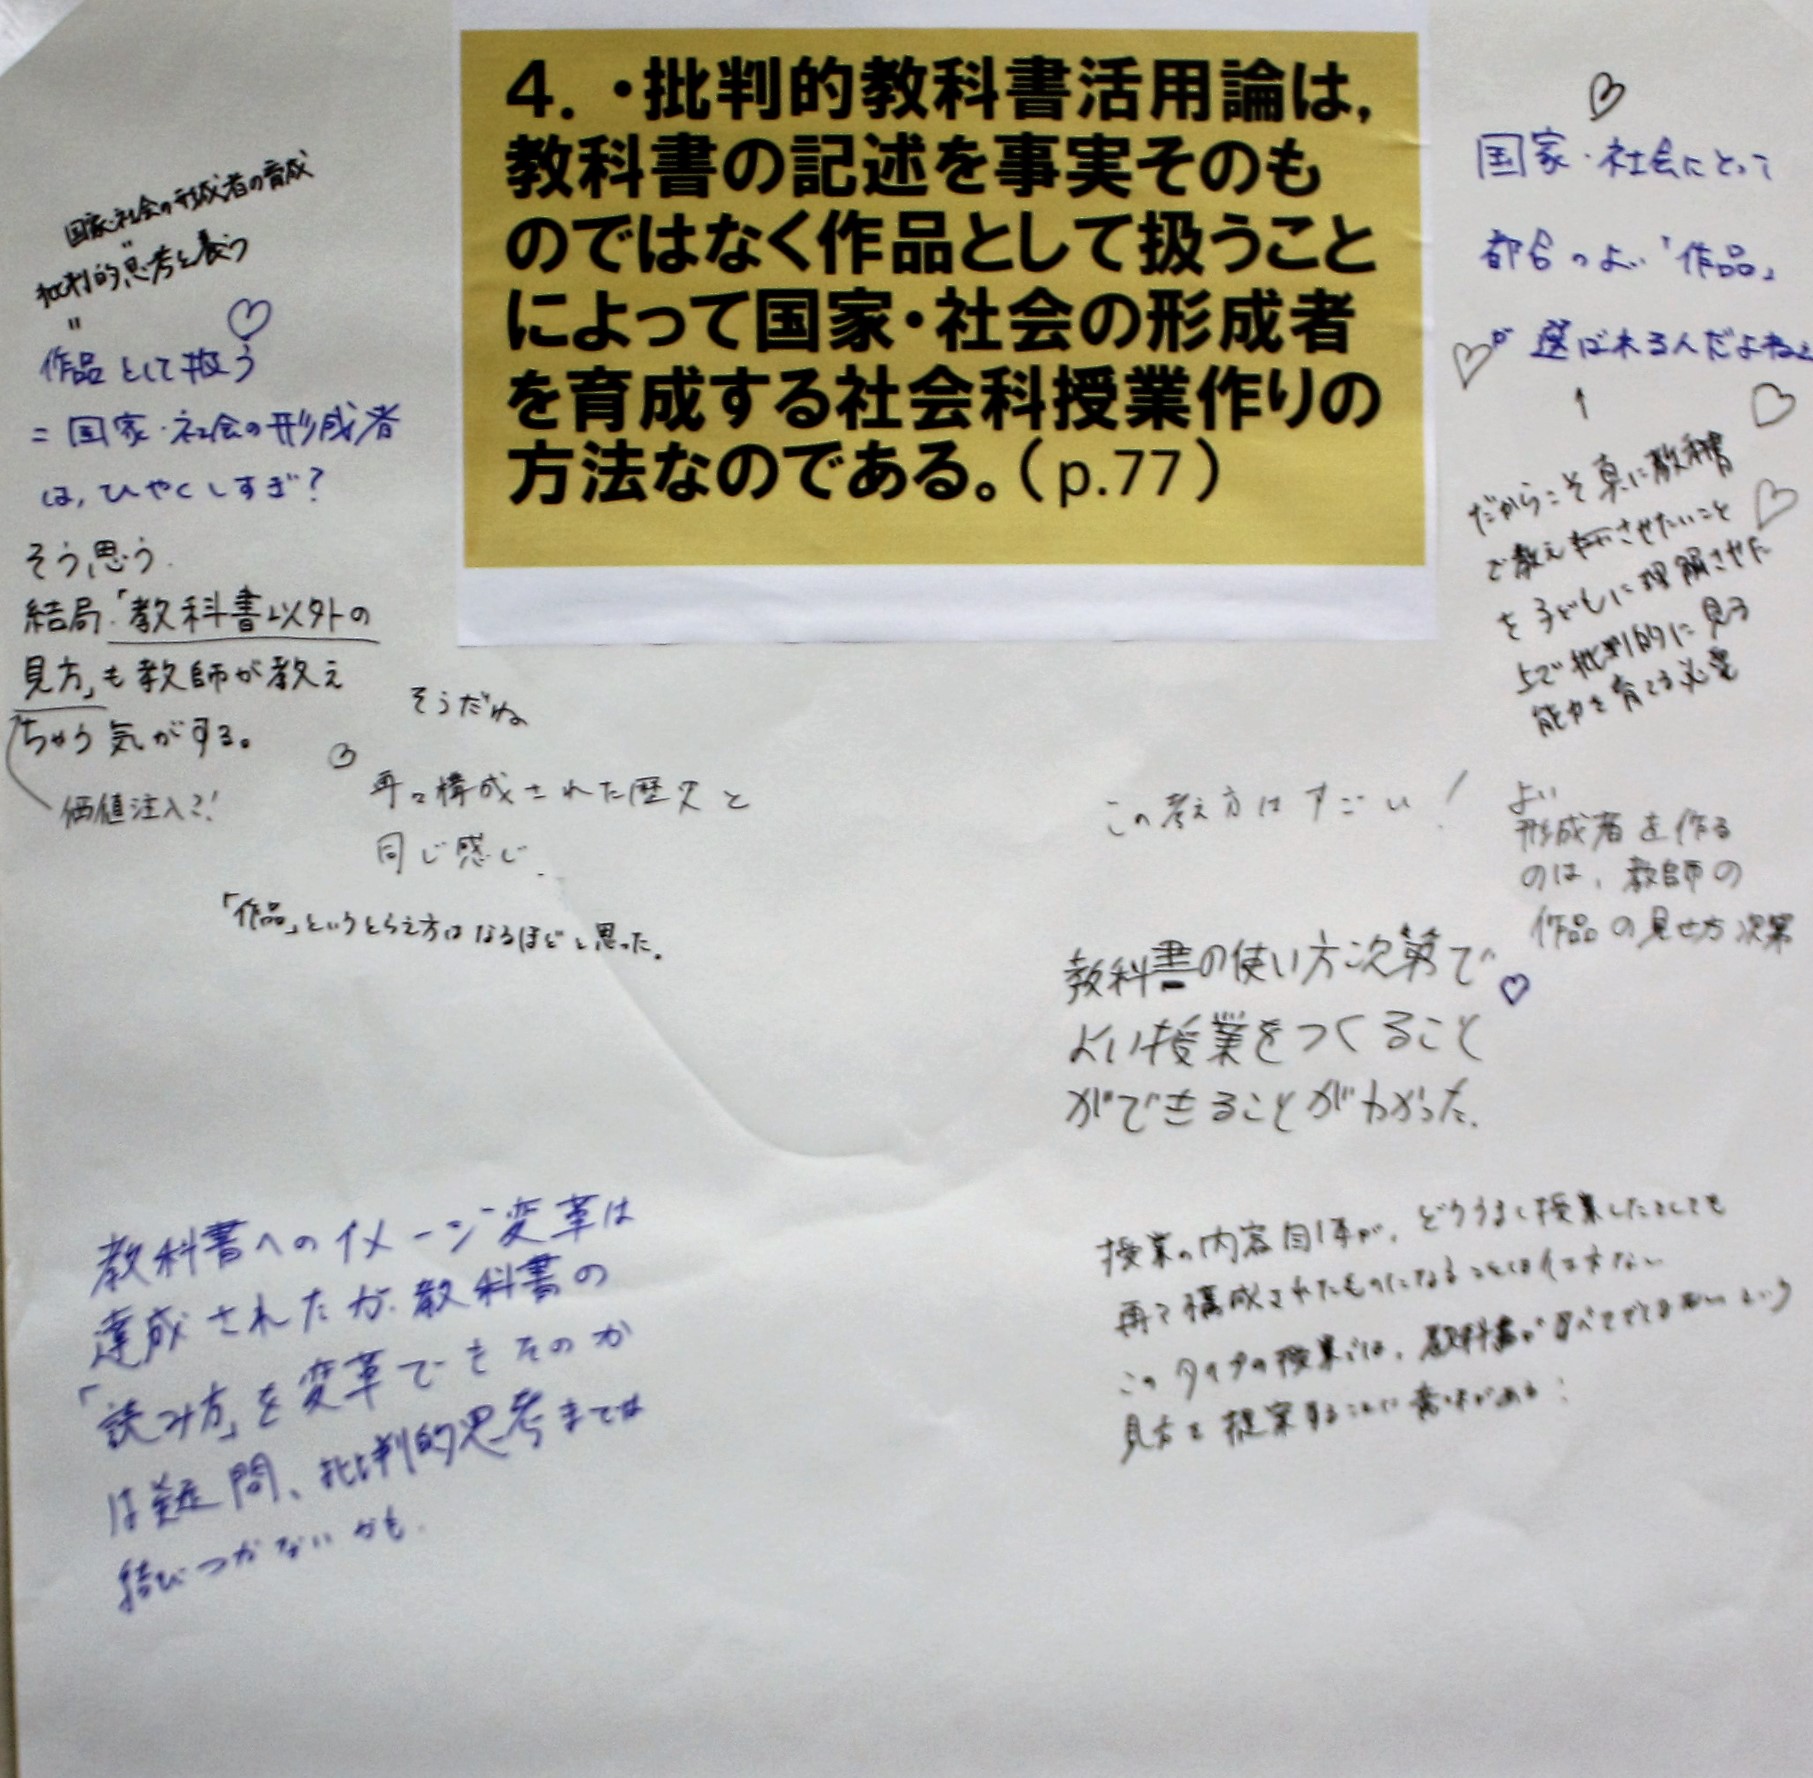 4. ・批判的教科書活用論は,
教科書の記述を事実そのも
のではなく作品として扱うこと
によって国家・社会の形成者
を育成する社会科授業作りの
方法なのである。(p.77)
国家・社会の形成者の育成
"
批判的思考を養う
"
作品として扱う
=国家・社会の形成者
は,ひやくしすぎ?
そう思う.
結局.「教科書以外の
見方」も教師が教え
ちゃう気がする。
価値注入?!
そうだね
再構成された歴史と
同じ感じ.
「作品」というとらえ方はなるほどと思った.
教科書へのイメージ変革は
達成されたが.教科書の
「読み方」を変革できるのか
は疑問、批判的思考までは
結びつかないかも.
国家・社会にとって
都合のよい「作品」
が選ばれるんだよねぇ
↑
だからこそ真に教科書
で教え させたいこと
を子どもに理解させた
上で批判的に見る
能力を育てる必要
この考え方はすごい!
よい
形成者を作る
のは,教師の
作品の見せ方次第
教科書の使い方次第で
よい授業をつくること
ができることがわかった.
授業の内容自体が,どううまく授業したとしても
再構成されたものになることは仕方ない
このタイプの授業では,教科書がすべてではないという
見方を提案することに意味がある: